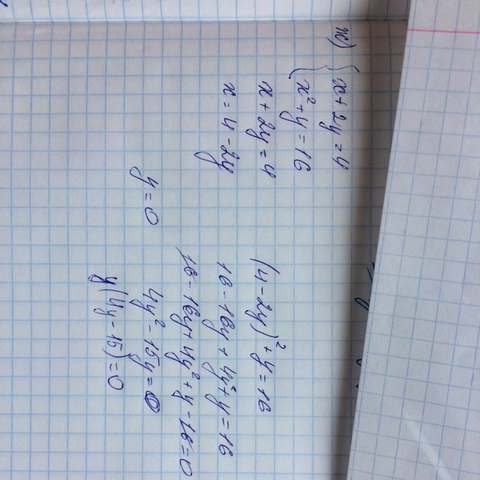 ж) { x + 2y = 4
{ x² + y = 16
x + 2y = 4
x = 4 - 2y
(4 - 2y)² + y = 16
16 - 16y + 4y² + y = 16
16 - 16y + 4y² + y - 16 = 0
4y² - 15y = 0
y(4y - 15) = 0
y = 0